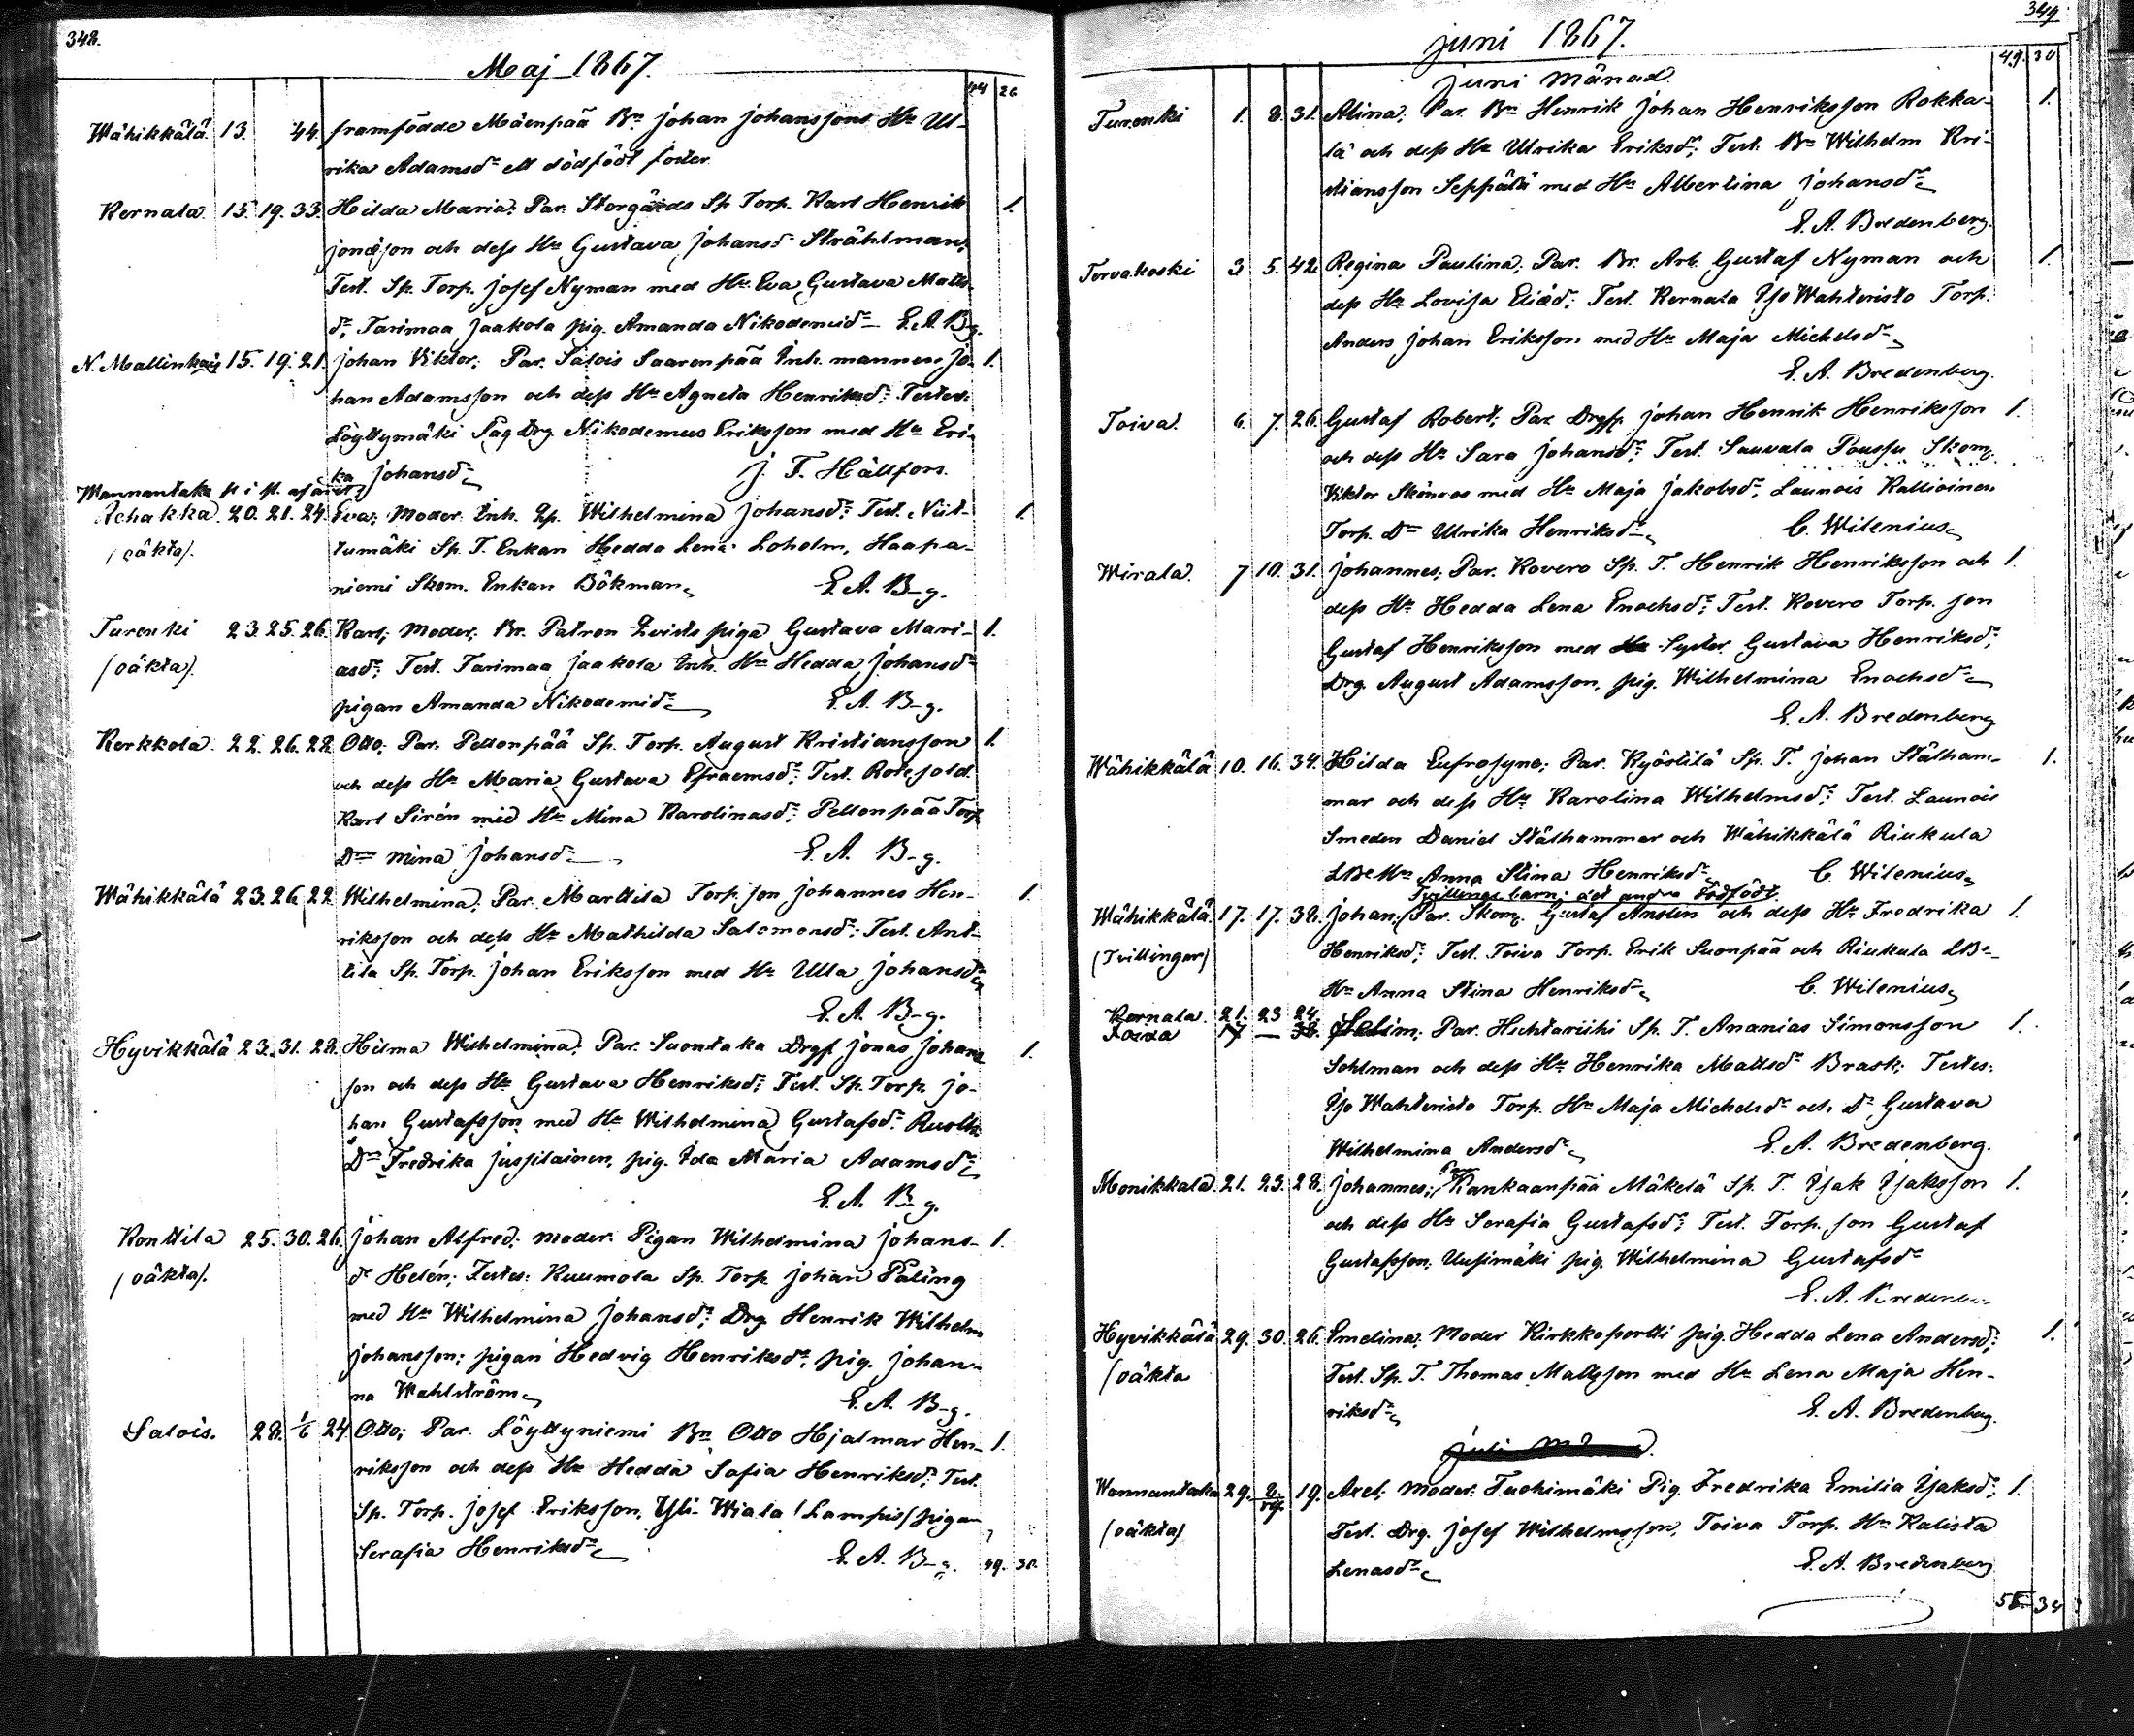 348.
Maj 1867.
44 26
Wähikkälä 13. 44. framfödde Mäenpää Bn Johan Johanssons Hu Ul-
rika Adamsdr ett dödfödt foster.
Kernala 15. 19. 33. Hilda Maria; Par. Storgårds Sp. Torp. Karl Henrik 1.
Jonasson och dess Hu Gustava Johansdr Stråhlman;
Test. Sp. Torp. Josef Nyman med Hu Eva Gustava Matts-
dr, Tarimaa Jaakola pig. Amanda Nikodemidr E. A. B-g.
N. Mallinkais 15. 19. 21. Johan Viktor; Par. Salois Saarenpää Inh. mannen Jo- 1.
han Adamsson och dess Hu Agneta Henriksdr; Testes:
Löyttymäki Drg. Nikodemus Eriksson med Hu Eri-
ka Johansdr J. F. Hällfors.
Wannantaka
Achakka 20. 21. 24. Eva; Moder. Inh. Wilhelmina Johansdr; Test. Niit- 1.
(oäkta). tumäki Sp. T. Enkan Hedda Lena Loholm, Haapa-
niemi Skom. Enkan Bökman E. A. B-g.
Turenki 23. 25. 26. Karl; Moder; Br. Patron Qvists piga Gustava Mari- 1.
(oäkta). asdr; Test. Tarimaa Jaakola Inh. Hu Hedda Johansdr
pigan Amanda Nikodemidr E. A. B-g.
Kerkkola 22. 26. 28. Otto; Par. Pellonpää Sp. Torp. August Kristiansson 1.
och dess Hu Maria Gustava Efraemsdr; Test. Rotesold.
Karl Sirén med Hu Mina Karolinasdr; Pellonpää Torp.
Dr Mina Johansdr E. A. B-g.
Wähikkälä 23. 26. 22 Wilhelmina; Par. Marttila Torp. son Johannes Hen- 1.
riksson och dess Hu Mathilda Salomonsdr; Test. Ant-
tila Sp. Torp. Johan Eriksson med Hu Ulla Johansdr
E. A. B-g.
Hyvikkälä 23. 31. 28. Hilma Wilhelmina; Par. Suontaka Drgf. Jonas Johans 1.
son och dess Hu Gustava Henriksdr; Test. Sp. Torp. Jo-
han Gustafsson med Hu Wilhelmina Gustafsdr
Dr Fredrika Jussilainen, pig. Ida Maria Adamsdr
E. A. B-g.
Konttila 25. 30. 26. Johan Alfred; moder: Pigan Wilhelmina Johans- 1.
(oäkta). dr Helén; Testes: Kuumola Sp. Torp. Johan Paling
med Hu Wilhelmina Johansdr; Drg Henrik Wilhelm
Johansson; pigan Hedvig Henriksdr, pig. Johan-
na Wahlström E. A. B-g.
Salois. 28. 1/6 24 Otto; Par. Löyttyniemi Bn Otto Hjalmar Hen- 1.
riksson och dess Hu Hedda Sofia Henriksdr; Test.
Sp. Torp. Josef Eriksson, Yli-Wiala (Lampis) pigan
Serafia Henriksdr E. A. B-g. 49. 30.
349
Juni 1867.
49. 30
Juni Månad
Turenki 1. 8. 31. Alina; Par. Bn Henrik Johan Henriksson Rokka- 1.
la och dess Hu Ulrika Eriksdr; Test. Bn Wilhelm Kri-
stiansson Seppälä med Hu Albertina Johansdr
E. A. Bredenberg.
Tervakoski 3 5. 42. Regina Paulina; Par. Br. Arb. Gustaf Nyman och 1.
dess Hu Lovisa Eliædr; Test. Kernala Iso Wahteristo Torp.
Anders Johan Eriksson med Hu Maja Michelsdr
E. A. Bredenberg.
Toiva. 6. 7. 26. Gustaf Robert; Par. Drgf. Johan Henrik Henriksson 1.
och dess Hu Sara Johansdr; Test. Sauvala Poussu Skom.
Viktor Skönroos med Hu Maja Jakobsdr, Launois Kallioinen
Torp. Dr Ulrika Henriksdr C. Wilenius
Wirala. 7 10. 31. Johannes; Par. Rovero Sp. T. Henrik Henriksson och 1.
dess Hu Hedda Lena Enochsdr; Test. Rovero Torp. son
Gustaf Henriksson med Syster Gustava Henriksdr;
Drg. August Adamsson, pig. Wilhelmina Enochsdr
E. A. Bredenberg
Wähikkälä 10. 16. 34. Hilda Eufrosyne; Par. Kyöstilä Sp. T. Johan Stålham- 1.
mar och dess Hu Karolina Wilhelmsdr; Test. Launois
Smeden Daniel Stålhammar och Wähikkälä Riukula
LBe Hu Anna Stina Henriksdr C. Wilenius
Tvillings barn; det andra dödfödt.
Wähikkälä 17. 17. 38. Johan; Par. Skom. Gustaf Anslin och dess Hu Fredrika 1.
(Tvillingar) Henriksdr; Test. Toiva Torp. Erik Suonpää och Riukula LBe
Hu Anna Stina Henriksdr C. Wilenius
Kernala. 21. 23 24.
Toiva 17 — 38. Par. Hichtariihi Sp. T. Ananias Simonsson 1.
Sohlman och dess Hu Henrika Mattsdr Brask; Testes:
Iso Wahteristo Torp. Hu Maja Michelsdr och Dr Gustava
Wilhelmina Andersdr E. A. Bredenberg.
Monikkala 21. 23. 28. Johannes; Par. Kankaanpää Mäkelä Sp. T. Isak Isaksson 1.
och dess Hu Serafia Gustafsdr; Test. Torp. son Gustaf
Gustafsson, Uusimäki pig. Wilhelmina Gustafsdr
E. A. Bredenberg
Hyvikkälä 29. 30. 26. Emelina; Moder Kirkkoportti pig. Hedda Lena Andersdr; 1.
(oäkta Test. Sp. T. Thomas Mattsson med Hu Lena Maja Hen-
riksdr E. A. Bredenberg.
Wannantaka 29. 19. Axel; Moder: Tuohimäki Pig. Fredrika Emilia Isaksdr; 1.
(oäkta) Test. Drg. Josef Wilhelmsson, Toiva Torp. Hu Kalista
Lenasdr E. A. Bredenberg
34